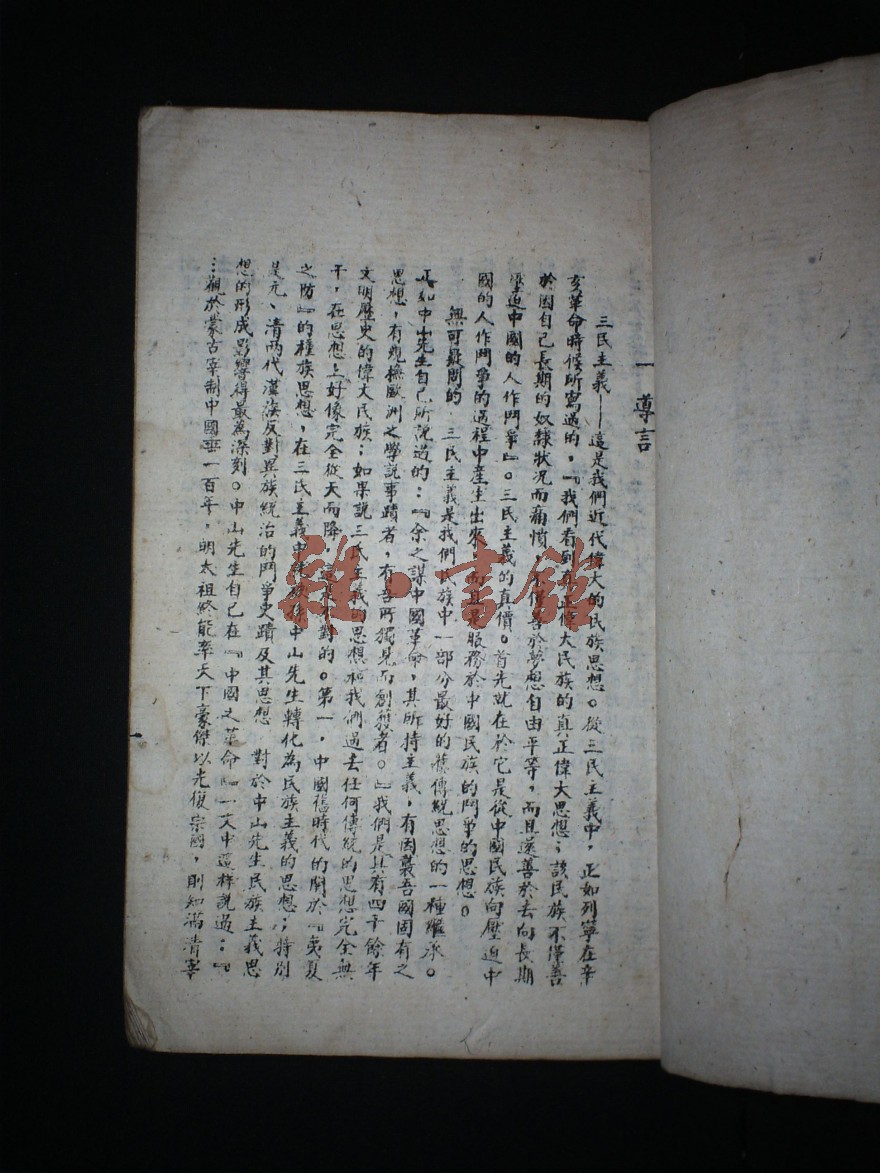 一 導言
三民主義——這是我們近代偉大的民族思想。從三民主義中，正如列寧在辛
亥革命時候所寫過的，『我們看到真正偉大民族的真正偉大思想；該民族不僅善
於國自己長期的奴隸狀況而痛憤，不僅善於夢想自由平等，而且還善於去向長期
壓迫中國的人作鬥爭』。三民主義的真價。首先就在於它是從中國民族向壓迫中
國的人作鬥爭的過程中產生出來，而且是服務於中國民族的鬥爭的思想。
無可疑問的，三民主義是我們民族中一部分最好的舊傳統思想的一種繼承。
正如中山先生自己所說過的：『余之謀中國革命，其所持主義，有因襲吾國固有之
思想，有規撫歐洲之學說事蹟者，有吾所獨見而創獲者。』我們是具有四千餘年
文明歷史的偉大民族；如果說三民主義的思想和我們過去任何傳統的思想完全無
干，在思想上好像完全從天而降，這是不對的。第一，中國舊時代的關於『夷夏
之防』的種族思想，在三民主義中就被孫中山先生轉化為民族主義的思想；特別
是元、清兩代漢族反對異族統治的鬥爭史蹟及其思想 對於中山先生民族主義思
想的形成影響得最為深刻。中山先生自己在『中國之革命』一文中這樣說過：『
…觀於蒙古宰制中國垂一百年，明太祖終能率天下豪傑以光復宗國，則知滿清宰
雜·書館